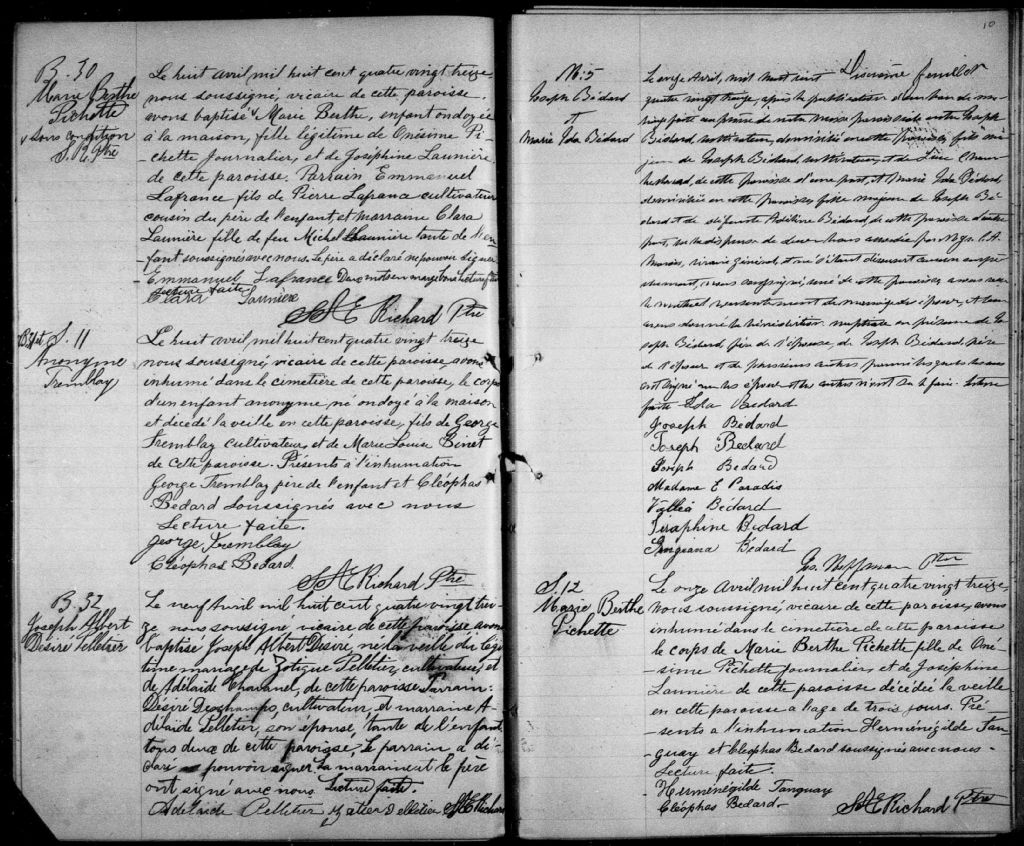 B. 30
Marie Berthe
Pichette
sous condition
J. R. Ptre
Le huit avril mil huit cent quatre vingt treize
nous soussigné, vicaire de cette paroisse
avons baptisé Marie Berthe, enfant ondoyée
à la maison, fille légitime de Onésime Pi-
chette Journalier, et de Joséphine Launière
de cette paroisse. Parrain Emmanuel
Lafrance fils de Pierre Lafrance cultivateur
cousin du père de l'enfant, et marraine Clara
Launière fille de feu Michel Launière tante de l'en-
fant soussignés avec nous. Le père a déclaré ne pouvoir signer
Emmanuel Lafrance Deux mots en marge bons Lecture faite
Clara Launière
Richard Ptre
S. 11
Anonyme
Tremblay
Le huit avril mil huit cent quatre vingt treize
nous soussigné, vicaire de cette paroisse, avons
inhumé dans le cimetière de cette paroisse, le corps
d'un enfant anonyme, né ondoyé à la maison
et décédé la veille en cette paroisse, fils de George
Tremblay cultivateur, et de Marie Louise Binet
de cette paroisse. Présents à l'inhumation
George Tremblay père de l'enfant et Cléophas
Bedard soussignés avec nous
Lecture faite.
George Tremblay
Cléophas Bedard
Richard Ptre
B. 32
Joseph Albert
Désiré Pelletier
Le neuf Avril mil huit cent quatre vingt trei-
ze nous soussigné, vicaire de cette paroisse avons
baptisé Joseph Albert Désiré, né la veille du légi-
time mariage de Zotique Pelletier, cultivateur, et
de Adélaïde Chavanel, de cette paroisse Parrain
Désiré Deschamps, cultivateur, et marraine A-
délaïde Pelletier, son épouse, tante de l'enfant
tous deux de cette paroisse, Le parrain a dé-
claré pouvoir signer. La marraine et le père
ont signé avec nous Lecture faite.
Adelaide Pelletier Pelletier Richard
10
M: 5
Joseph Bédard
et
Marie Ida Bédard
feuillet
Le onze Avril, mil huit cent
quatre vingt treize, après la publication d'un ban de ma-
riage faite au prône de notre Messe paroissiale entre Joseph
Bédard, cultivateur, domicilié en cette paroisse, fils ma-
jeur de Joseph Bédard, cultivateur, et de
de cette paroisse d'une part, et Marie Ida Bédard
domiciliée en cette paroisse, fille majeure de Joseph Bé-
dard et de défunte Adeline Bédard, de cette paroisse d'autre
part, vu la dispense de deux bans accordée par Mgr. C. A.
Marois, vicaire général, et ne s'étant découvert aucun empê-
chement, nous soussigné, curé de cette paroisse avons reçu
le mutuel consentement de mariage des époux, et leur
avons donné la bénédiction nuptiale en présence de Jo-
seph Bédard père de l'épouse, de Joseph Bédard, père
de l'époux et de plusieurs autres parmi lesquels
ont signé avec les époux et les autres n'ont su le faire. Lecture
faite Ida Bedard
Joseph Bédard
Joseph Bedard
Joseph Bedard
Madame E Paradis
Bédard
Séraphine Bedard
Georgiana Bédard
Geo. Hoffman Ptre
S. 12
Marie Berthe
Pichette
Le onze Avril mil huit cent quatre vingt treize,
nous soussigné, vicaire de cette paroisse, avons
inhumé dans le cimetière de cette paroisse
le corps de Marie Berthe Pichette fille de Oné-
sime Pichette Journalier, et de Joséphine
Launière de cette paroisse décédée la veille
en cette paroisse a l'age de trois jours. Pré-
sents a l'inhumation Herménégilde Tan-
guay et Cléophas Bedard soussignés avec nous
Lecture faite.
Herménégilde Tanguay
Cléophas Bedard
Richard Ptre